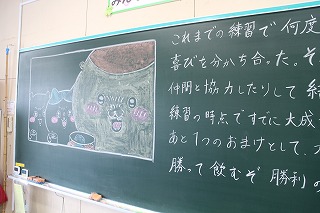 これまでの練習で何度
喜びを分かち合った。そ
仲間と協力したりして結
練習の時点ですでに大成
あと1つのおまけとして、
勝って飲むぞ勝利の